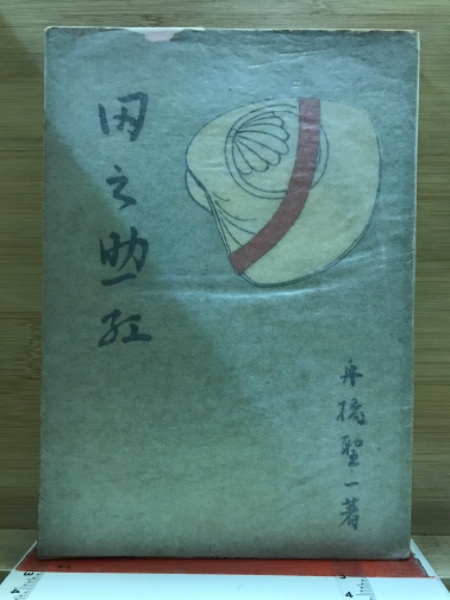 田之助紅
舟橋聖一著